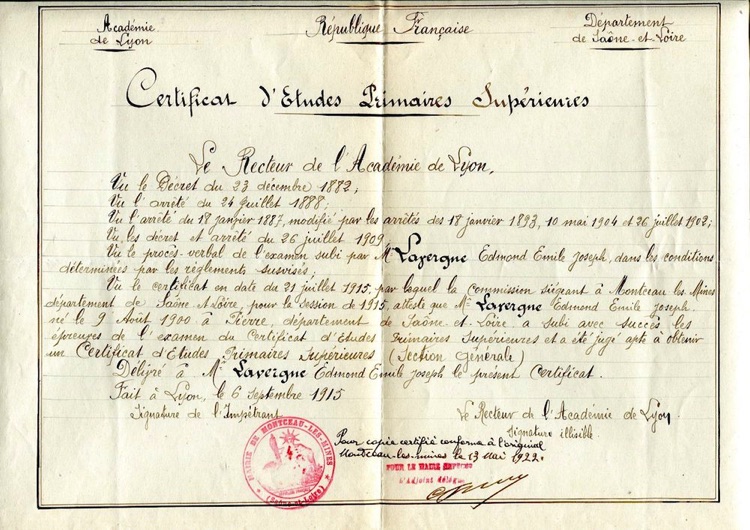 Académie
de Lyon
République Française
Département
de Saône-et-Loire
Certificat d'Etudes Primaires Supérieures
Le Recteur de l'Académie de Lyon,
Vu le Décret du 23 décembre 1882;
Vu l'arrêté du 24 juillet 1888;
Vu l'arrêté du 18 janvier 1887, modifié par les arrêtés des 18 janvier 1893, 10 mai 1904 et 26 juillet 1902;
Vu les décret et arrêté du 26 juillet 1909,
Vu le procès-verbal de l'examen subi par Mr Lavergne Edmond Emile Joseph, dans les conditions
déterminées par les règlements susvisés;
Vu le certificat en date du 21 juillet 1915, par lequel la Commission siégeant à Montceau les Mines
département de Saône et Loire, pour la session de 1915, atteste que Mr Lavergne Edmond Emile Joseph
né le 9 Août 1900 à Pierre, département de Saône-et-Loire a subi avec succès les
épreuves de l'examen du Certificat d'Etudes Primaires Supérieures et a été jugé apte à obtenir
un Certificat d'Etudes Primaires Supérieures (Section Générale)
Délivré à Mr Lavergne Edmond Emile Joseph le présent Certificat.
Fait à Lyon, le 6 Septembre 1915
Signature de l'Impétrant
Le Recteur de l'Académie de Lyon
Signature illisible
Pour copie certifiée conforme à l'original
Montceau-les-mines le 13 Mai 1922.
POUR LE MAIRE
L'Adjoint délégué
MAIRIE DE MONTCEAU-LES-MINES
(Saône-et-Loire)